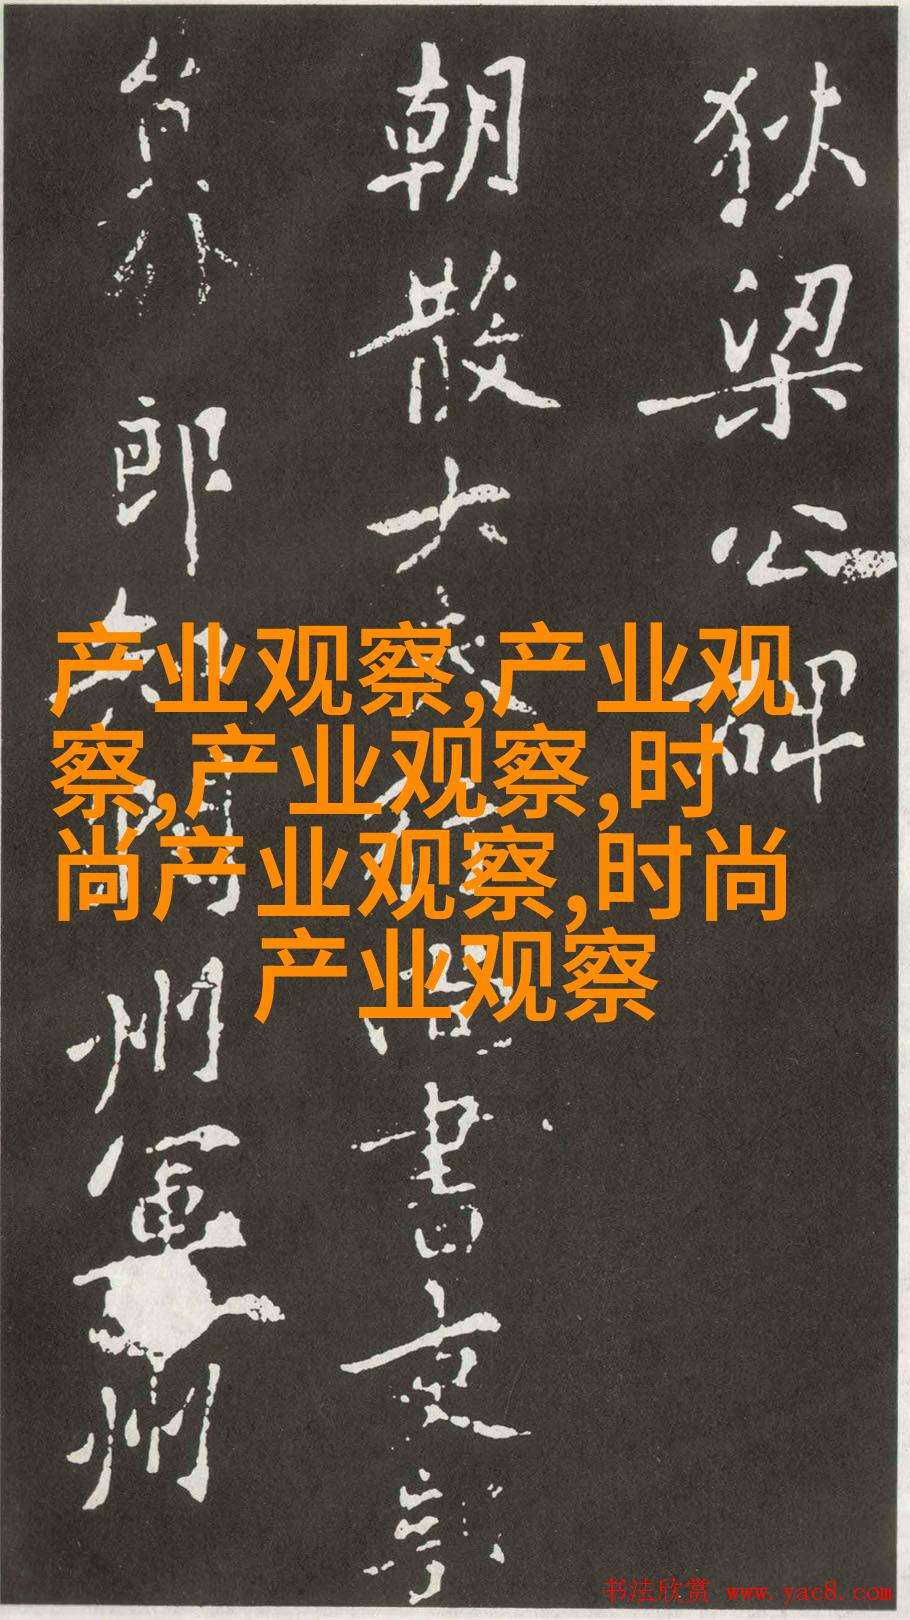 狄梁公碑
朝散大夫書吏部
員外郎州軍州
产业观察,产业观
察,产业观察,时
尚产业观察,时尚
产业观察
书法欣赏 www.yac8.com